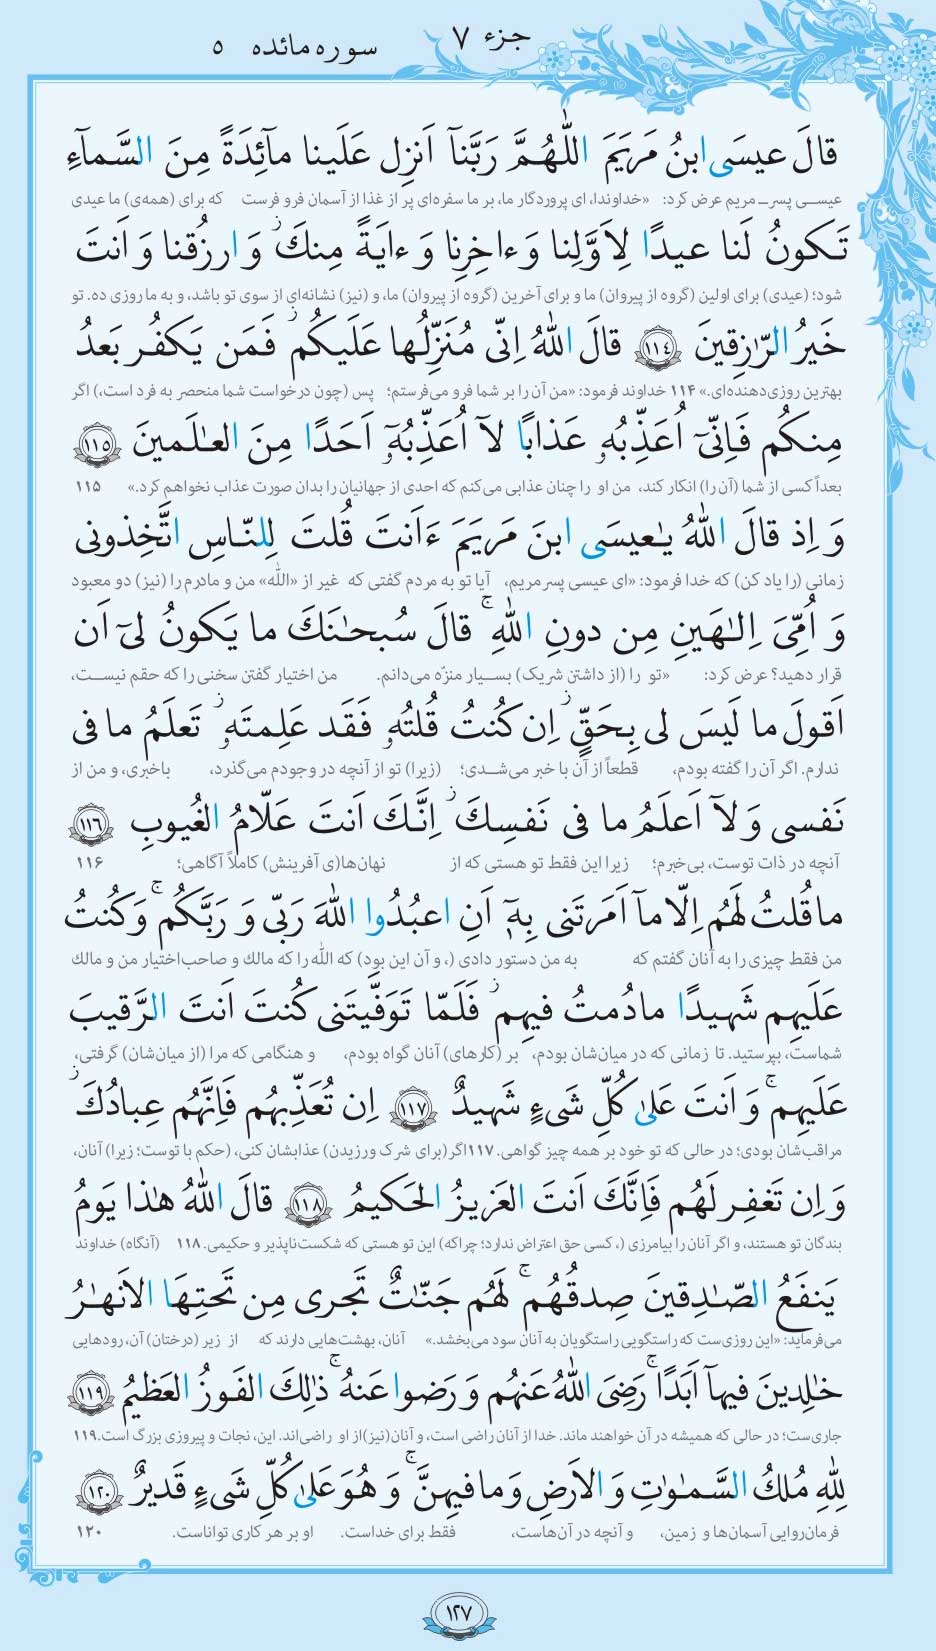 جزء ۷
سوره مائده ۵
قالَ عیسَی ابنُ مَریَمَ اللّٰهُمَّ رَبَّنآ اَنزِل عَلَینا مآئِدَةً مِنَ السَّمآءِ
عیسی پسر مریم عرض کرد: «خداوندا، ای پروردگار ما، بر ما سفره‌ای پر از غذا از آسمان فرو فرست که برای (همه‌ی) ما عیدی
تَکونُ لَنا عیدًا لِاَوَّلِنا وَ ءاخِرِنا وَ ءایَةً مِنكَ ۖ وَ ارزُقنا وَ اَنتَ
شود؛ (عیدی) برای اولین (گروه از پیروان) ما و برای آخرین (گروه از پیروان) ما، و (نیز) نشانه‌ای از سوی تو باشد، و به ما روزی ده. تو
خَیرُ الرّٰازِقینَ ﴿۱۱٤﴾ قالَ اللهُ اِنّی مُنَزِّلُها عَلَیکُم ۖ فَمَن یَکفُر بَعدُ
بهترین روزی‌دهنده‌ای.» ۱۱۴ خداوند فرمود: «من آن را بر شما فرو می‌فرستم؛ پس (چون درخواست شما منحصر به فرد است،) اگر
مِنکُم فَاِنّیٓ اُعَذِّبُهو عَذابًا لآ اُعَذِّبُهوٓ اَحَدًا مِنَ العٰلَمینَ ﴿۱۱۵﴾
بعداً کسی از شما (آن را) انکار کند، من او را چنان عذابی می‌کنم که احدی از جهانیان را بدان صورت عذاب نخواهم کرد.» ۱۱۵
وَ اِذ قالَ اللهُ یٰعیسَی ابنَ مَریَمَ ءَاَنتَ قُلتَ لِلنّاسِ اتَّخِذونی
زمانی (را یاد کن) که خدا فرمود: «ای عیسی پسر مریم، آیا تو به مردم گفتی که غیر از «الله» من و مادرم را (نیز) دو معبود
وَ اُمِّیَ اِلٰهَینِ مِن دونِ اللهِ ۚ قالَ سُبحٰنَكَ ما یَکونُ لیٓ اَن
قرار دهید؟ عرض کرد: «تو را (از داشتن شریک) بسیار منزّه می‌دانم. من اختیار گفتن سخنی را که حقم نیست،
اَقولَ ما لَیسَ لی بِحَقٍّ ۖ اِن کُنتُ قُلتُهو فَقَد عَلِمتَهو ۖ تَعلَمُ ما فی
ندارم. اگر آن را گفته بودم، قطعاً از آن با خبر می‌شدی؛ (زیرا) تو از آنچه در وجودم می‌گذرد، باخبری، و من از
نَفسی وَ لآ اَعلَمُ ما فی نَفسِكَ ۖ اِنَّكَ اَنتَ عَلّامُ الغُیوبِ ﴿۱۱٦﴾
آنچه در ذات توست، بی‌خبرم؛ زیرا این فقط تو هستی که از نهان‌ها(ی آفرینش) کاملاً آگاهی؛ ۱۱۶
ما قُلتُ لَهُم اِلّا مآ اَمَرتَنی بِهٖٓ اَنِ اعبُدُوا اللهَ رَبّی وَ رَبَّکُم ۚ وَ کُنتُ
من فقط چیزی را به آنان گفتم که به من دستور دادی (، و آن این بود) که الله را که مالك و صاحب‌اختیار من و مالك
عَلَیهِم شَهیدًا ما دُمتُ فیهِم ۖ فَلَمّا تَوَفَّیتَنی کُنتَ اَنتَ الرَّقیبَ
شماست، بپرستید. تا زمانی که در میان‌شان بودم، بر (کارهای) آنان گواه بودم، و هنگامی که مرا (از میان‌شان) گرفتی،
عَلَیهِم ۚ وَ اَنتَ عَلیٰ کُلِّ شَیءٍ شَهیدٌ ﴿۱۱۷﴾ اِن تُعَذِّبهُم فَاِنَّهُم عِبادُكَ ۖ
مراقب‌شان بودی؛ در حالی که تو خود بر همه چیز گواهی. ۱۱۷ اگر (برای شرک ورزیدن) عذابشان کنی، (حکم با توست؛ زیرا) آنان،
وَ اِن تَغفِر لَهُم فَاِنَّكَ اَنتَ العَزیزُ الحَکیمُ ﴿۱۱۸﴾ قالَ اللهُ هٰذا یَومُ
بندگان تو هستند، و اگر آنان را بیامرزی (، کسی حق اعتراض ندارد؛ چراکه) این تو هستی که شکست‌ناپذیر و حکیمی. ۱۱۸ (آنگاه) خداوند
یَنفَعُ الصّٰدِقینَ صِدقُهُم ۚ لَهُم جَنّٰتٌ تَجری مِن تَحتِهَا الاَنهٰرُ
می‌فرماید: «این روزی‌ست که راستگویی راستگویان به آنان سود می‌بخشد.» آنان، بهشت‌هایی دارند که از زیر (درختان) آن، رودهایی
خٰلِدینَ فیهآ اَبَدًا ۚ رَضِیَ اللهُ عَنهُم وَ رَضوا عَنهُ ۚ ذٰلِكَ الفَوزُ العَظیمُ ﴿۱۱۹﴾
جاری‌ست؛ در حالی که همیشه در آن خواهند ماند. خدا از آنان راضی است، و آنان (نیز) از او راضی‌اند. این، نجات و پیروزی بزرگ است. ۱۱۹
لِلّٰهِ مُلكُ السَّمٰوٰتِ وَ الاَرضِ وَ ما فیهِنَّ ۚ وَ هُوَ عَلیٰ کُلِّ شَیءٍ قَدیرٌ ﴿۱۲۰﴾
فرمان‌روایی آسمان‌ها و زمین، و آنچه در آن‌هاست، فقط برای خداست. او بر هر کاری تواناست. ۱۲۰
۱۲۷